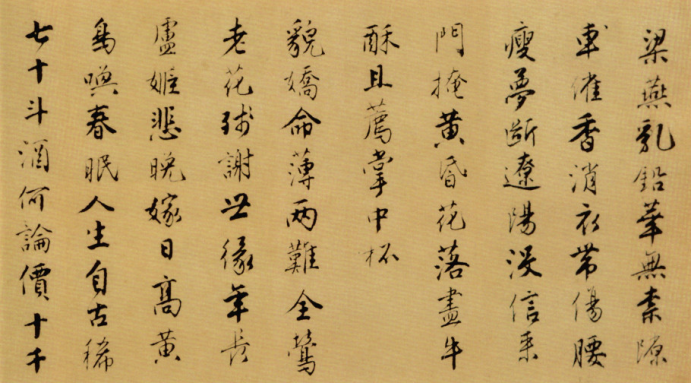 梁燕乳鉛華無柰隙
車催香消衣帶傷腰
瘦夢斷遼陽沒信來
門掩黃昏花落盡牛
酥且薦掌中杯
貌嬌命薄兩難全鶯
老花殘謝世緣年長
盧姬悲晚嫁日高黃
鳥喚春眠人生自古稀
七十斗酒何論價十千